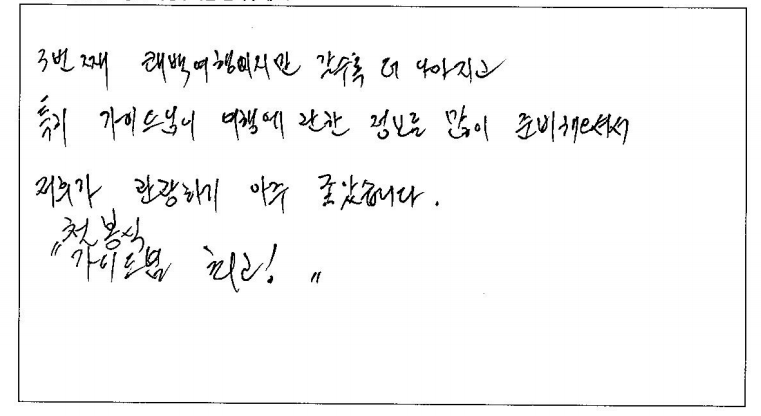 3번째 태백여행이지만 갈수록 더 나아지고
특히 가이드님이 여행에 관한 정보를 많이 준비해주셔서
저희가 관광하기 아주 좋았습니다.
"최봉식
가이드님 최고!"